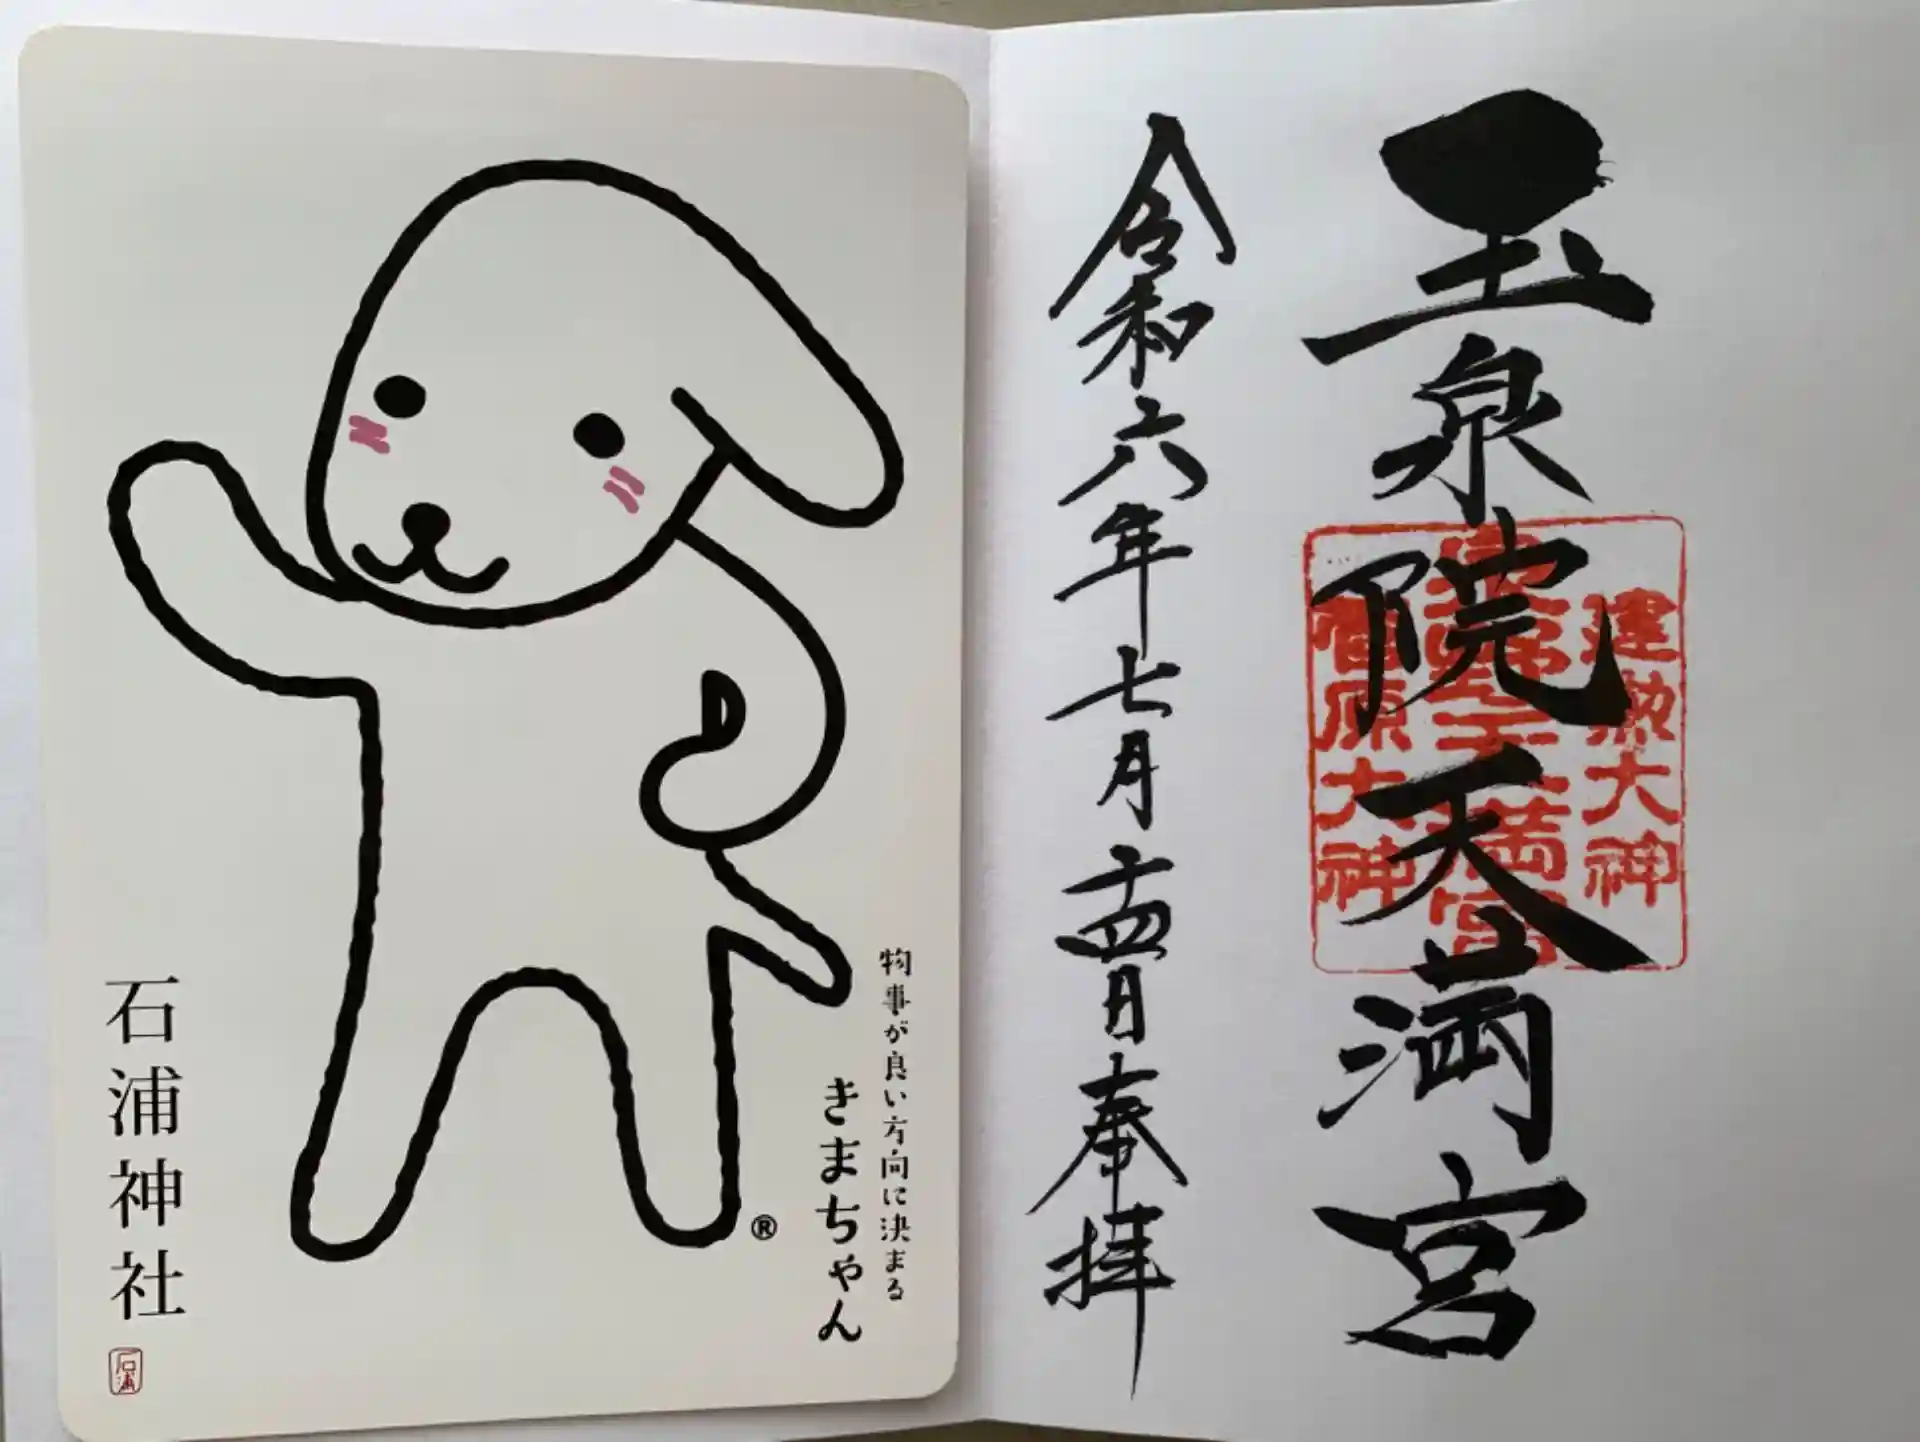 玉泉院天満宮
建勲大神
天満宮
菅原大神
令和六年七月十四日奉拝
物事が良い方向に決まる
きまちゃん
®
石浦神社
石浦